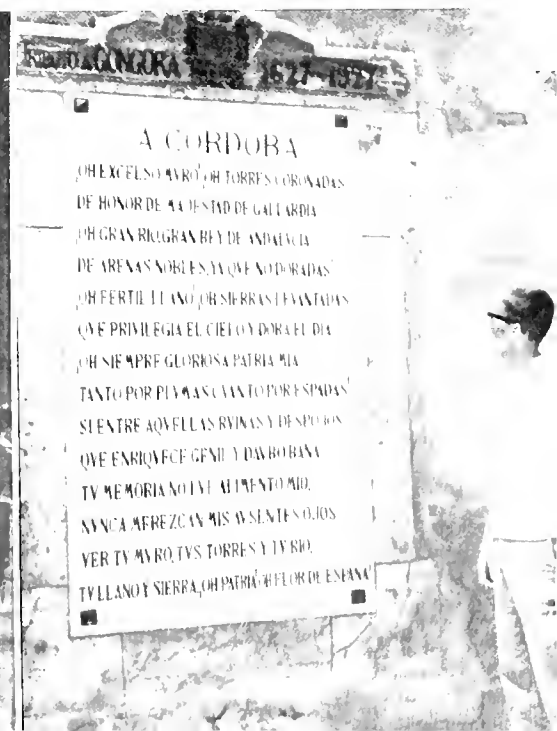 A GONGORA 1627-1927
A CORDOBA
¡OH EXCELSO MVRO! ¡OH TORRES CORONADAS
DE HONOR DE MAJESTAD DE GALLARDIA
¡OH GRAN RIO, GRAN REY DE ANDALVCIA
DE ARENAS NOBLES, YA QVE NO DORADAS!
¡OH FERTIL LLANO! ¡OH SIERRAS LEVANTADAS
QVE PRIVILEGIA EL CIELO Y DORA EL DIA
¡OH SIEMPRE GLORIOSA PATRIA MIA
TANTO POR PLVMAS CVANTO POR ESPADAS!
SI ENTRE AQVELLAS RVINAS Y DESPOJOS
QVE ENRIQVECE GENIL Y DAVRO BAÑA
TV MEMORIA NO FVE ALIMENTO MIO,
NVNCA MEREZCAN MIS AVSENTES OJOS
VER TV MVRO, TVS TORRES Y TV RIO,
TV LLANO Y SIERRA, ¡OH PATRIA! ¡OH FLOR DE ESPAÑA!